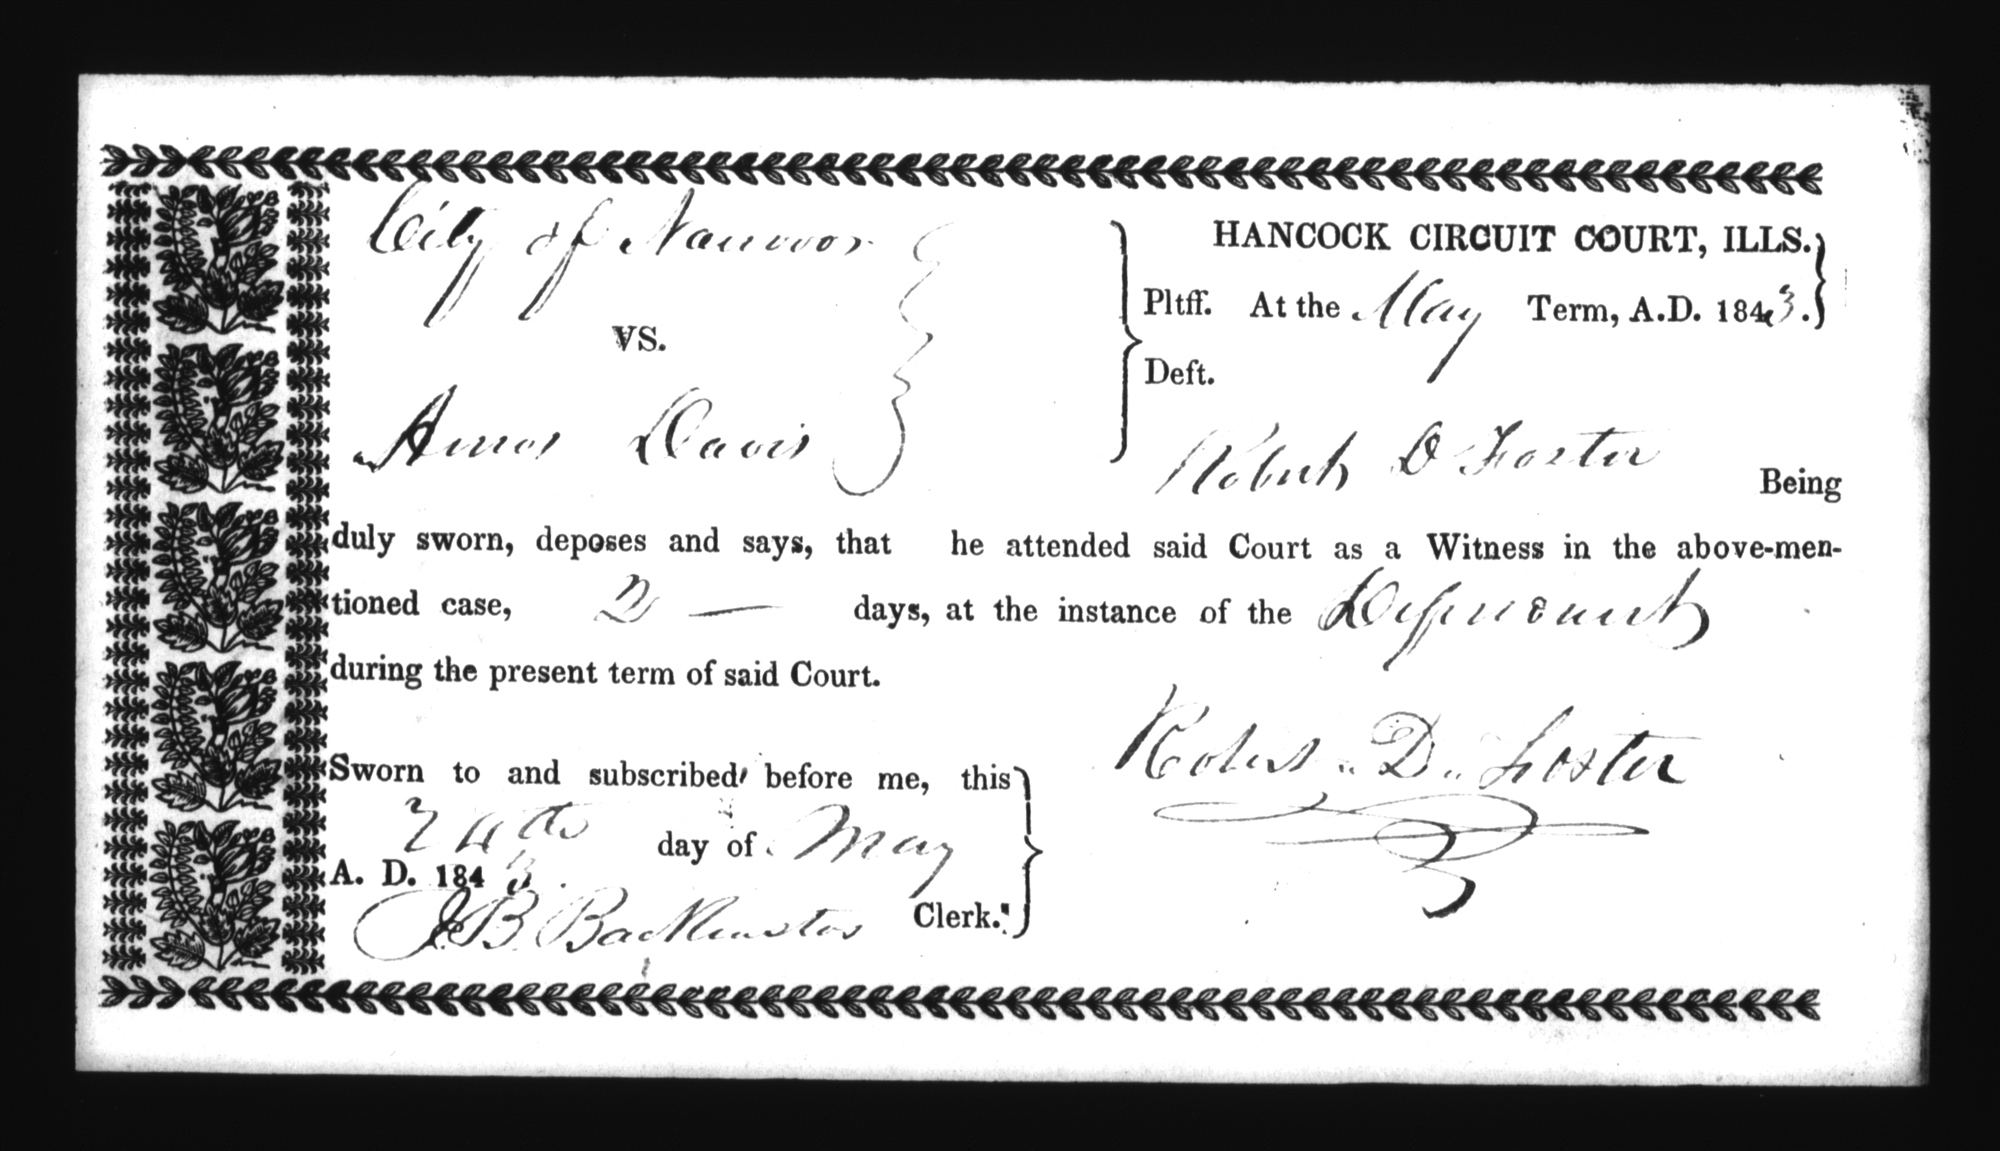 HANCOCK CIRCUIT COURT, ILLS.
City of Nauvoo
Pltff. At the May Term, A.D. 1843.
VS.
Deft.
Amos Davis
Robert D Foster Being
duly sworn, deposes and says, that he attended said Court as a Witness in the above-men-
tioned case, 2 — days, at the instance of the
during the present term of said Court.
Robert D. Foster
Sworn to and subscribed before me, this
24th day of May
A. D. 1843.
J. B. Backenstos Clerk.